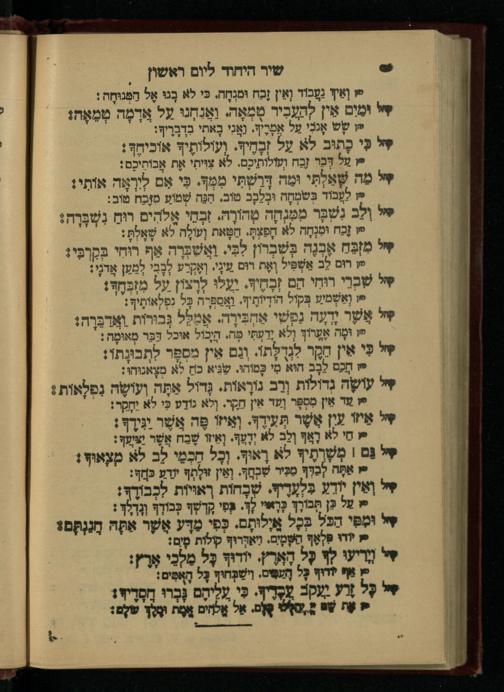 שיר היחוד ליום ראשון
חזן וְאֵיךְ נַעֲבוֹד וְאֵין זֶבַח וּמִנְחָה. כִּי לֹא בָאנוּ אֶל הַמְּנוּחָה:
קהל וּמַיִם אֵין לְהַעֲבִיר טֻמְאָה. וַאֲנַחְנוּ עַל אֲדָמָה טְמֵאָה:
חזן שָׂשׂ אָנֹכִי עַל אֲמָרֶיךָ. וַאֲנִי בָאתִי בִדְבָרֶיךָ:
קהל כִּי כָתוּב לֹא עַל זְבָחֶיךָ. וְעוֹלוֹתֶיךָ אוֹכִיחֶךָ:
חזן עַל דְּבַר זֶבַח וְעוֹלוֹתֵיכֶם. לֹא צִוִּיתִי אֶת אֲבוֹתֵיכֶם:
קהל מַה שָּׁאַלְתִּי וּמַה דָּרַשְׁתִּי מִמְּךָ. כִּי אִם לְיִרְאָה אוֹתִי:
חזן לַעֲבוֹד בְּשִׂמְחָה וּבְלֵבָב טוֹב. הִנֵּה שְׁמוֹעַ מִזֶּבַח טוֹב:
קהל וְלֵב נִשְׁבָּר מִמִּנְחָה טְהוֹרָה. זִבְחֵי אֱלֹהִים רוּחַ נִשְׁבָּרָה:
חזן זֶבַח וּמִנְחָה לֹא חָפַצְתָּ. חַטָּאת וְעוֹלָה לֹא שָׁאָלְתָּ:
קהל מִזְבֵּחַ אֶבְנֶה בְּשִׁבְרוֹן לִבִּי. וַאֲשַׁבְּרָה אַף רוּחִי בְּקִרְבִּי:
חזן רוּם לֵב אַשְׁפִּיל וְאֶת רוּם עֵינַי. וְאֶקְרַע לְבָבִי לְמַעַן אֲדֹנָי:
קהל שִׁבְרֵי רוּחִי הֵם זְבָחֶיךָ. יַעֲלוּ לְרָצוֹן עַל מִזְבְּחֶךָ:
חזן וְאַשְׁמִיעַ בְּקוֹל הוֹדָיוֹתֶיךָ. וַאֲסַפְּרָה כָּל נִפְלְאוֹתֶיךָ:
קהל אֲשֶׁר יָדְעָה נַפְשִׁי אַחְבִּירָה. אֲמַלֵּל גְּבוּרוֹת וַאֲדַבֵּרָה:
חזן וּמָה אֶעֱרוֹךְ וְלֹא יָדַעְתִּי מָה. הֲיָכוֹל אוּכַל דַּבֵּר מְאוּמָה:
קהל כִּי אֵין חֵקֶר לִגְדֻלָּתוֹ. וְגַם אֵין מִסְפָּר לִתְבוּנָתוֹ:
חזן חֲכַם לֵבָב הוּא מִי כָמוֹהוּ. שַׂגִּיא כֹחַ לֹא מְצָאנוּהוּ:
קהל עוֹשֶׂה גְדוֹלוֹת וְרַב נוֹרָאוֹת. גָּדוֹל אַתָּה וְעוֹשֵׂה נִפְלָאוֹת:
חזן עַד אֵין מִסְפָּר וְעַד אֵין חֵקֶר. וְלֹא נוֹדַע כִּי לֹא יֵחָקֵר:
קהל אֵיזוֹ עַיִן אֲשֶׁר תְּעִידֶךָ. וְאֵיזוֹ פֶה אֲשֶׁר יַגִּידֶךָ:
חזן חַי לֹא רָאֲךָ וְלֵב לֹא יְדָעֶךָ. וְאֵיזוֹ שֶׁבַח אֲשֶׁר יַגִּיעֶךָ:
קהל גַּם ׀ מְשָׁרְתֶיךָ לֹא רָאוּךָ. וְכָל חַכְמֵי לֵב לֹא מְצָאוּךָ:
חזן אַתָּה לְבַדְּךָ מַכִּיר שִׁבְחֶךָ. וְאֵין זוּלָתְךָ יוֹדֵעַ כֹּחֶךָ:
קהל וְאֵין יוֹדֵעַ בִּלְעָדֶיךָ. שְׁבָחוֹת רְאוּיוֹת לִכְבוֹדֶךָ:
חזן עַל כֵּן תְּבוֹרַךְ כָּרָאוּי לָךְ. כְּפִי קָדְשְׁךָ כְּבוֹדְךָ וְגָדְלֶךָ:
קהל וּמִפִּי הַכֹּל בְּכָל אֱיָלוּתָם. כְּפִי מַדָּע אֲשֶׁר אַתָּה חֲנַנְתָּם:
חזן יוֹדוּ פִלְאֲךָ הַשָּׁמָיִם. וְיַאְדִּירוּךָ קוֹלוֹת מָיִם:
קהל וְיָרִיעוּ לְךָ כָּל הָאָרֶץ. יוֹדוּךָ כָּל מַלְכֵי אָרֶץ:
חזן אַף יוֹדוּךָ כָּל הָעַמִּים. וִישַׁבְּחוּךָ כָּל הָאֻמִּים:
קהל כָּל זֶרַע יַעֲקֹב עֲבָדֶיךָ. כִּי עֲלֵיהֶם גָּבְרוּ חֲסָדֶיךָ:
חזן אֶת שֵׁם יְיָ יְהַלְלוּ כֻלָּם. אֵל אֱלֹהִים אֱמֶת וּמֶלֶךְ עוֹלָם: